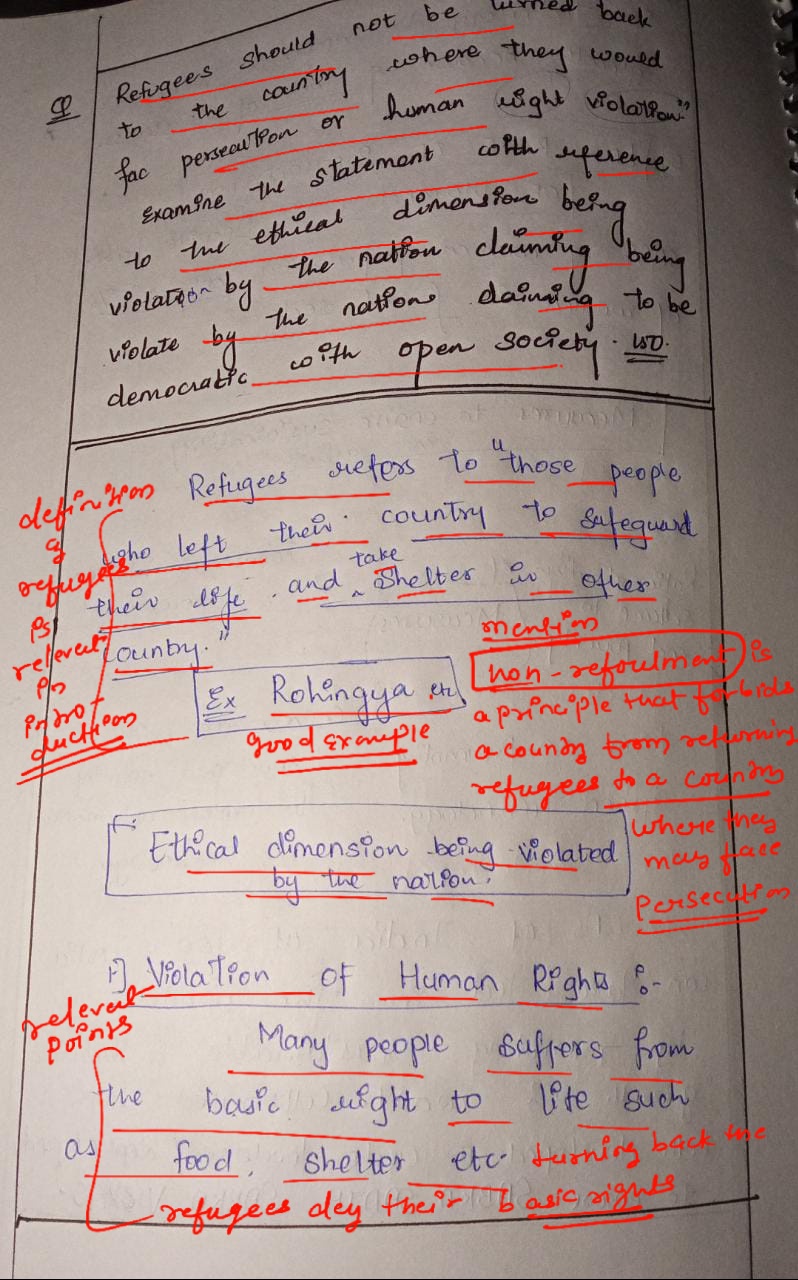 Refugees should not be turned back
Q
to the country where they would
fac persecution or human right violation"
Examine the statement with reference
to the ethical dimension being
violation by the nation claiming being
violate by the nations claiming to be
democratic with open society. 150.
Refugees refers to "those people
who left their country to safeguard
their life and take shelter in other
country."
Ex Rohingya etc
definition
of
refugees
is
relevent
in
intro-
duction
good example
mention
non-refoulment is
a principle that forbids
a country from returning
refugees to a country
where they
may face
persecution
Ethical dimension being violated
by the nation.
1] Violation of Human Rights :-
relevent
points
Many people suffers from
the basic right to life such
as food, shelter etc. turning back the
refugees dey their basic rights